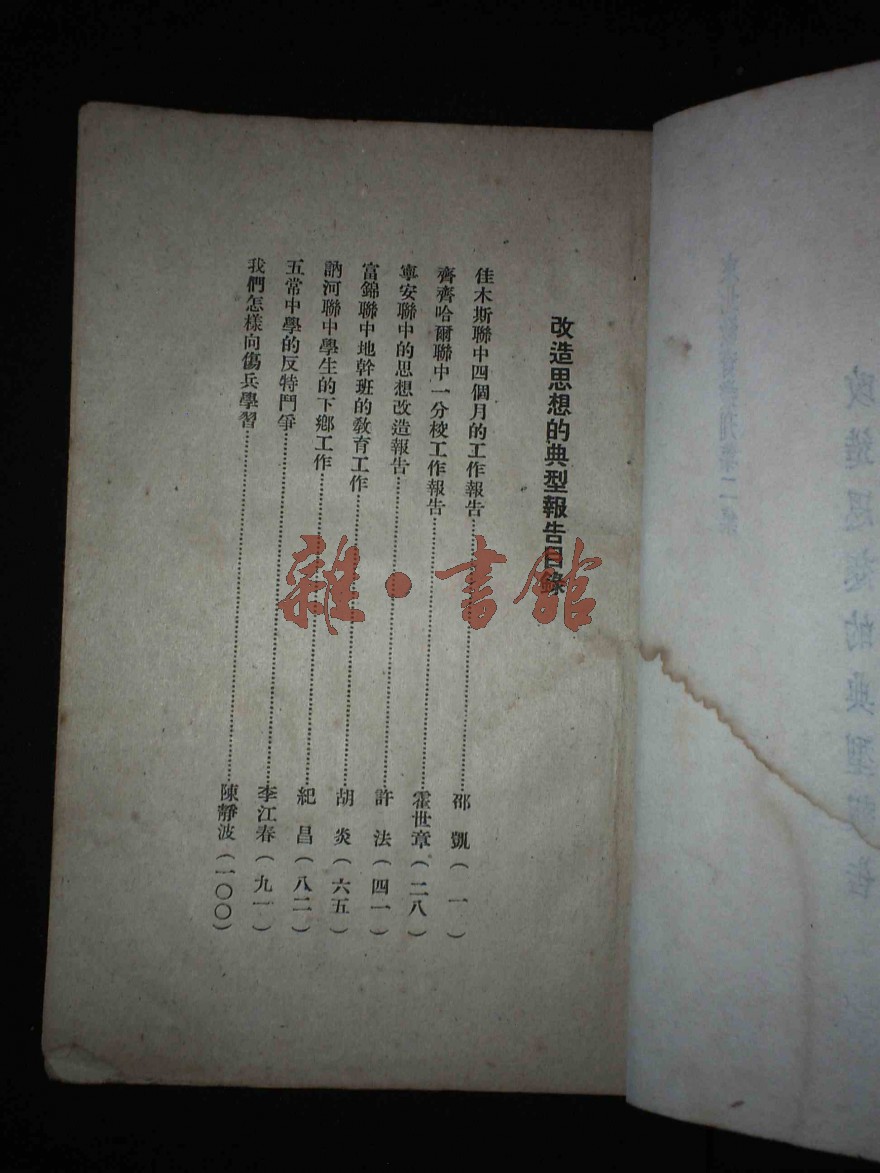 改造思想的典型報告目錄
佳木斯聯中四個月的工作報告……邵 凱(一)
齊齊哈爾聯中一分校工作報告……霍世章(二八)
寧安聯中的思想改造報告……許 法(四一)
富錦聯中地幹班的敎育工作……胡 炎(六五)
訥河聯中學生的下鄉工作……紀 昌(八二)
五常中學的反特鬥爭……李江春(九一)
我們怎樣向傷兵學習……陳靜波(一〇〇)
雜·書館
改造思想的典型報告